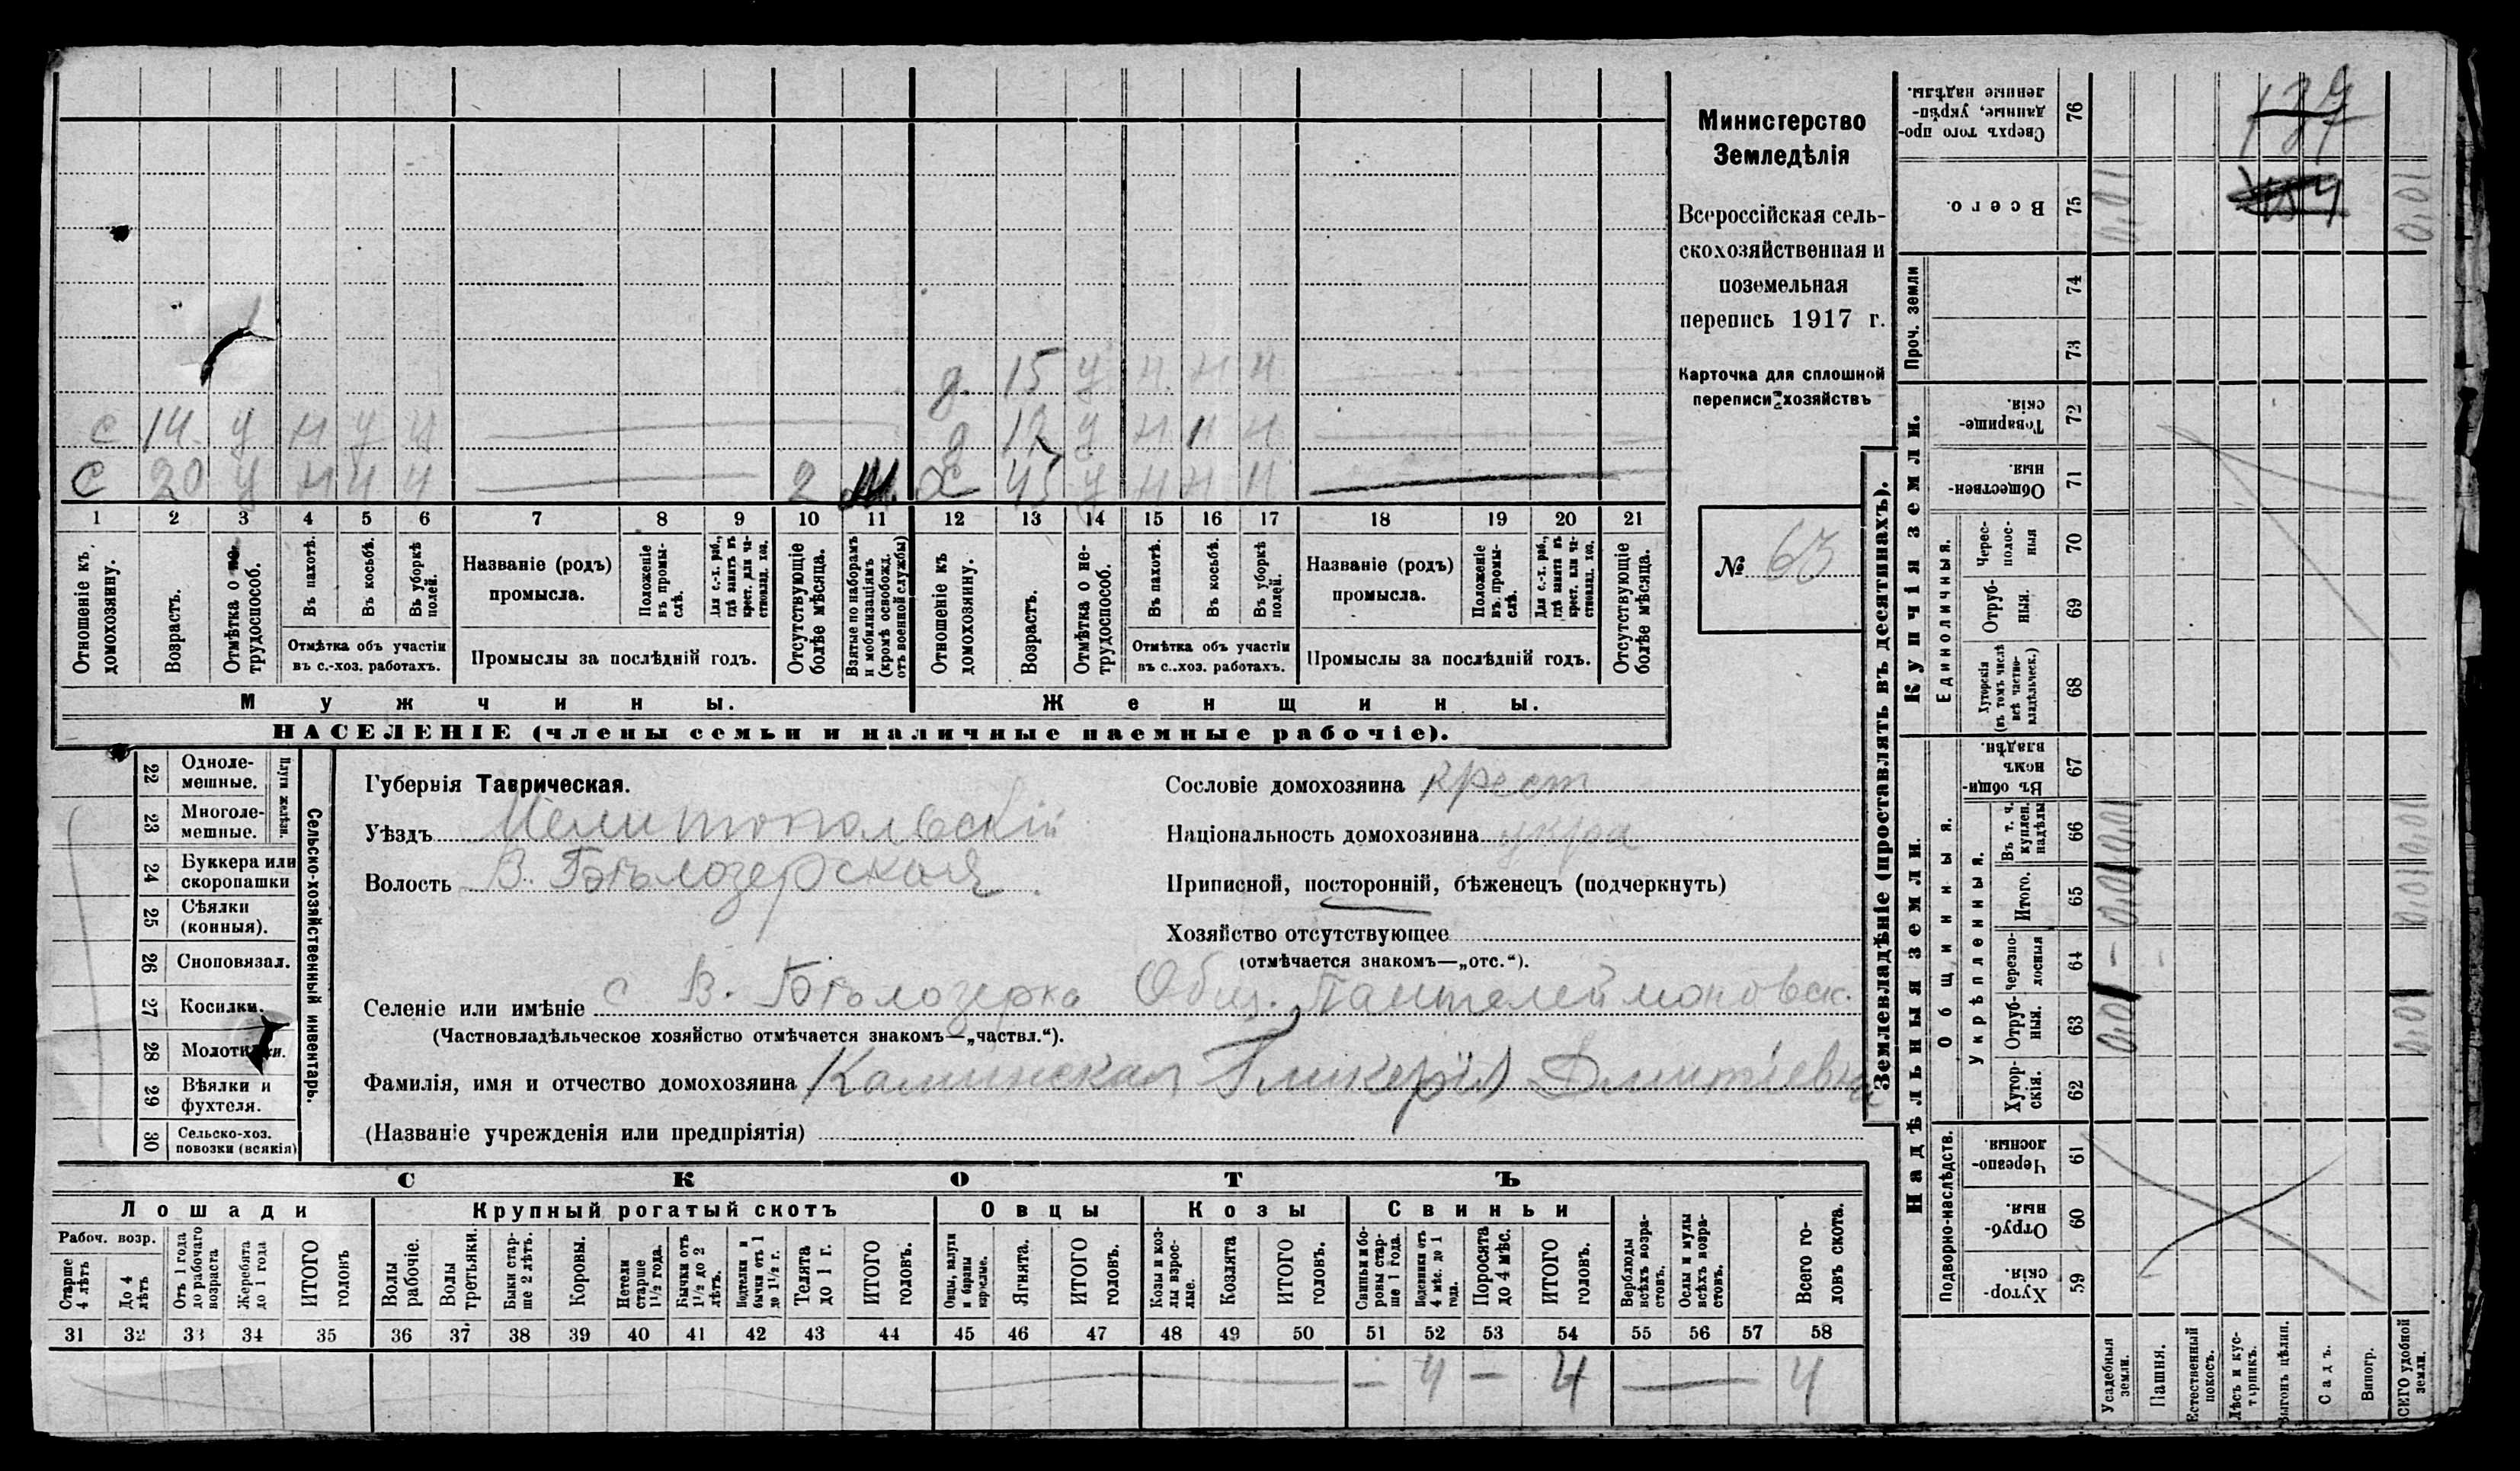 Министерство
Земледѣлія
Всероссійская сель-
скохозяйственная и
поземельная
перепись 1917 г.
Карточка для сплошной
переписи хозяйствъ
№ 63
д. 15 у н н н
с 14 у н у у д 12 у н н н
с 20 у н ч ч 2 х 45 у н н н
1 2 3 4 5 6 7 8 9 10 11 12 13 14 15 16 17 18 19 20 21
Отношеніе къ домохозяину.
Возрастъ.
Отмѣтка о не-трудоспособ.
Въ пахотѣ.
Въ косьбѣ.
Въ уборкѣ полей.
Отмѣтка объ участіи
въ с.-хоз. работахъ.
Названіе (родъ)
промысла.
Положеніе въ промы-слѣ.
Для с.-х. раб., гдѣ занятъ въ крест. или ча-стновлад. хоз.
Промыслы за послѣдній годъ.
Отсутствующіе болѣе мѣсяца.
Взятые по наборамъ и мобилизаціямъ (кромѣ освобожд. отъ военной службы)
Отношеніе къ домохозяину.
Возрастъ.
Отмѣтка о не-трудоспособ.
Въ пахотѣ.
Въ косьбѣ.
Въ уборкѣ полей.
Отмѣтка объ участіи
въ с..хоз. работахъ.
Названіе (родъ)
промысла.
Положеніе въ промы-слѣ.
Для с.-х. раб., гдѣ занята въ крест. или ча-стновлад. хоз.
Промыслы за послѣдній годъ.
Отсутствующіе болѣе мѣсяца.
Мужчины. Женщины.
НАСЕЛЕНІЕ (члены семьи и наличные наемные рабочіе).
Сельско-хозяйственный инвентарь.
Плуги желѣзн.
22 Одноле-мешные.
23 Многоле-мешные.
24 Буккера или скоропашки
25 Сѣялки (конныя).
26 Сноповязал.
27 Косилки.
28 Молотилки.
29 Вѣялки и фухтеля.
30 Сельско-хоз. повозки (всякія)
Губернія Таврическая.
Уѣздъ Мелитопольскій
Волость В. Бѣлозерская
Сословіе домохозяина крест
Національность домохозяина укра
Приписной, посторонній, бѣженец (подчеркнуть)
Хозяйство отсутствующее
(отмѣчается знакомъ—„отс.“).
Селеніе или имѣніе с В. Бѣлозерка Общ. Пантелеймоновск.
(Частновладѣльческое хозяйство отмѣчается знакомъ—„частвл.“).
Фамилія, имя и отчество домохозяина Каминская Гликерія Дмитіевна
(Названіе учрежденія или предпріятія)
СКОТЪ
Лошади Крупный рогатый скотъ Овцы Козы Свиньи
Рабоч. возр.
Старше 4 лѣтъ
До 4 лѣтъ
Отъ 1 года до рабочаго возраста
Жеребята до 1 года
ИТОГО головъ
Волы рабочіе.
Волы третьяки.
Быки стар-ше 2 лѣтъ.
Коровы.
Нетели старше 1½ года.
Бычки отъ 1½ до 2 лѣтъ.
Подтелки и бычки отъ 1 до 1½ г.
Телята до 1 г.
ИТОГО головъ.
Овцы, валухи и бараны взрослые.
Ягнята.
ИТОГО головъ.
Козы и коз-лы взрос-лые.
Козлята
ИТОГО головъ.
Свиньи и бо-ровы стар-ше 1 года.
Подсвинки отъ 4 мѣс. до 1 года.
Поросята до 4 мѣс.
ИТОГО головъ.
Верблюды всѣхъ возра-стовъ.
Ослы и мулы всѣхъ возра-стовъ.
Всего го-ловъ скота.
31 32 33 34 35 36 37 38 39 40 41 42 43 44 45 46 47 48 49 50 51 52 53 54 55 56 57 58
— 4 — 4 — 4
Землевладѣніе (проставлять въ десятинахъ).
Проч. земли
Купчія земли.
Надѣльныя земли.
Единоличныя.
Общинныя.
Укрѣпленныя.
Подворно-наслѣдств.
76 Сверхъ того про-данные, укрѣп-ленные надѣлы.
75 Всего. 0,01 0,01
74
73
72 Товарище-скія.
71 Обществен-ныя
70 Черес-полос-ныя
69 Отруб-ныя.
68 Хуторскія (въ томъ числѣ всѣ частно-владѣльческ.)
67 Въ общи-номъ владѣн.
66 Въ т. ч. куплен. надѣлы 0,01 0,01
65 Итого. 0,01 0,01
64 Черезпо-лосныя —
63 Отруб-ныя. 0,01 0,01
62 Хутор-скія.
61 Черезпо-лосныя
60 Отруб-ныя.
59 Хутор-скія.
Усадебныя земли.
Пашня.
Естественный покосъ.
Лѣсъ и кус-тарникъ.
Выгонъ цѣлин.
Садъ.
Виногр.
ВСЕГО удобной земли.